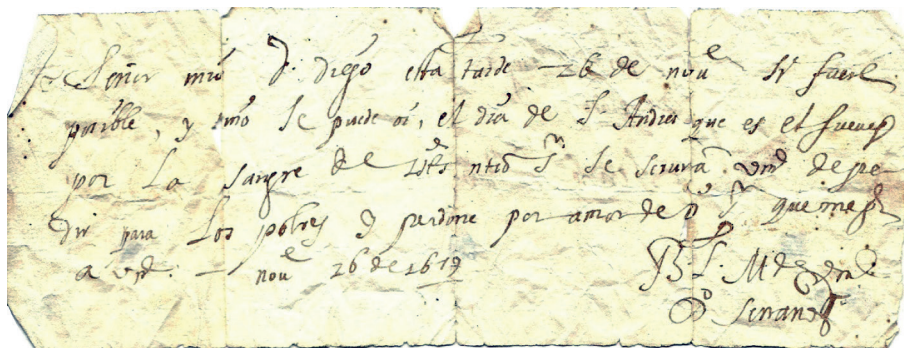 Señor mio D. Diego esta tarde 26 de noue si fuere
posible, y sino se puede oi, el dia de S. Andres que es el jueues
por La sangre de ntro Sr se seruira vmd de pe
dir para Los pobres y perdone por amor de D. Sr que me gde
a vmd. — noue 26 de 1619
B. L. M de vmd.
Serrano